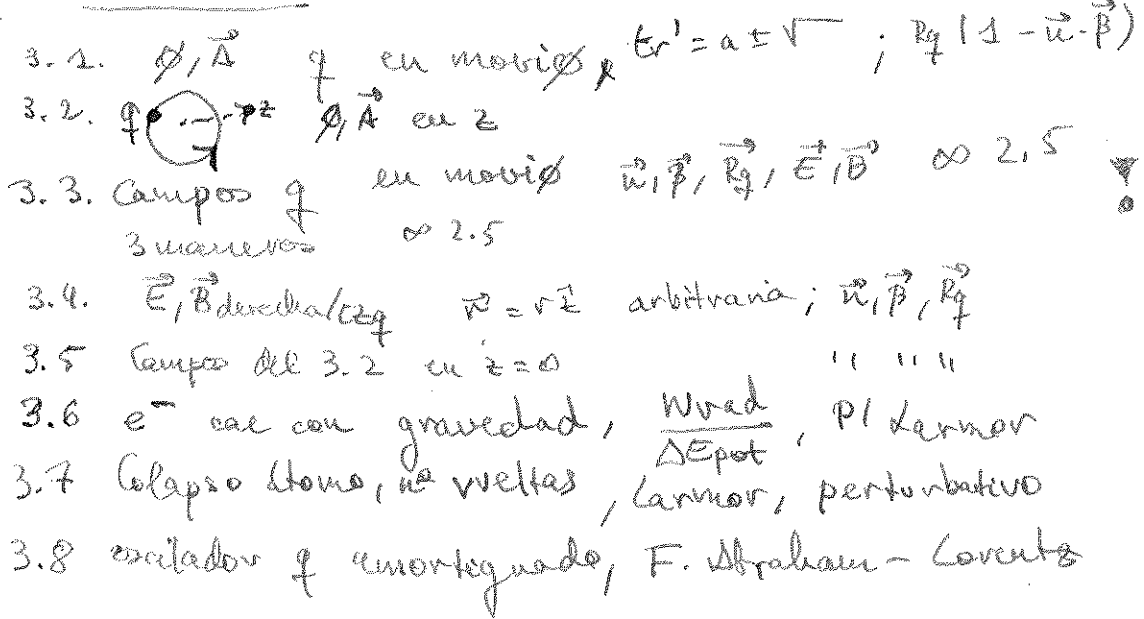 3.1. ϕ, A⃗ q en moviϕ, tr' = a ± √ ; Rq (1 - n⃗·β⃗)
3.2. q z ϕ, A⃗ en z
3.3. Campos q en moviϕ n⃗, β⃗, R⃗q, E⃗, B⃗ ∞ 2.5 !
3 maneras ∞ 2.5
3.4. E⃗, B⃗ derecha/izq v⃗ = v z⃗ arbitraria; n⃗, β⃗, R⃗q
3.5 Campos del 3.2 en z=0 " " "
3.6 e⁻ cae con gravedad, Wrad/ΔEpot, P/ Larmor
3.7 Colapso átomo, nº vueltas, Larmor, perturbativo
3.8 oscilador q amortiguado, F. Abraham - Lorentz